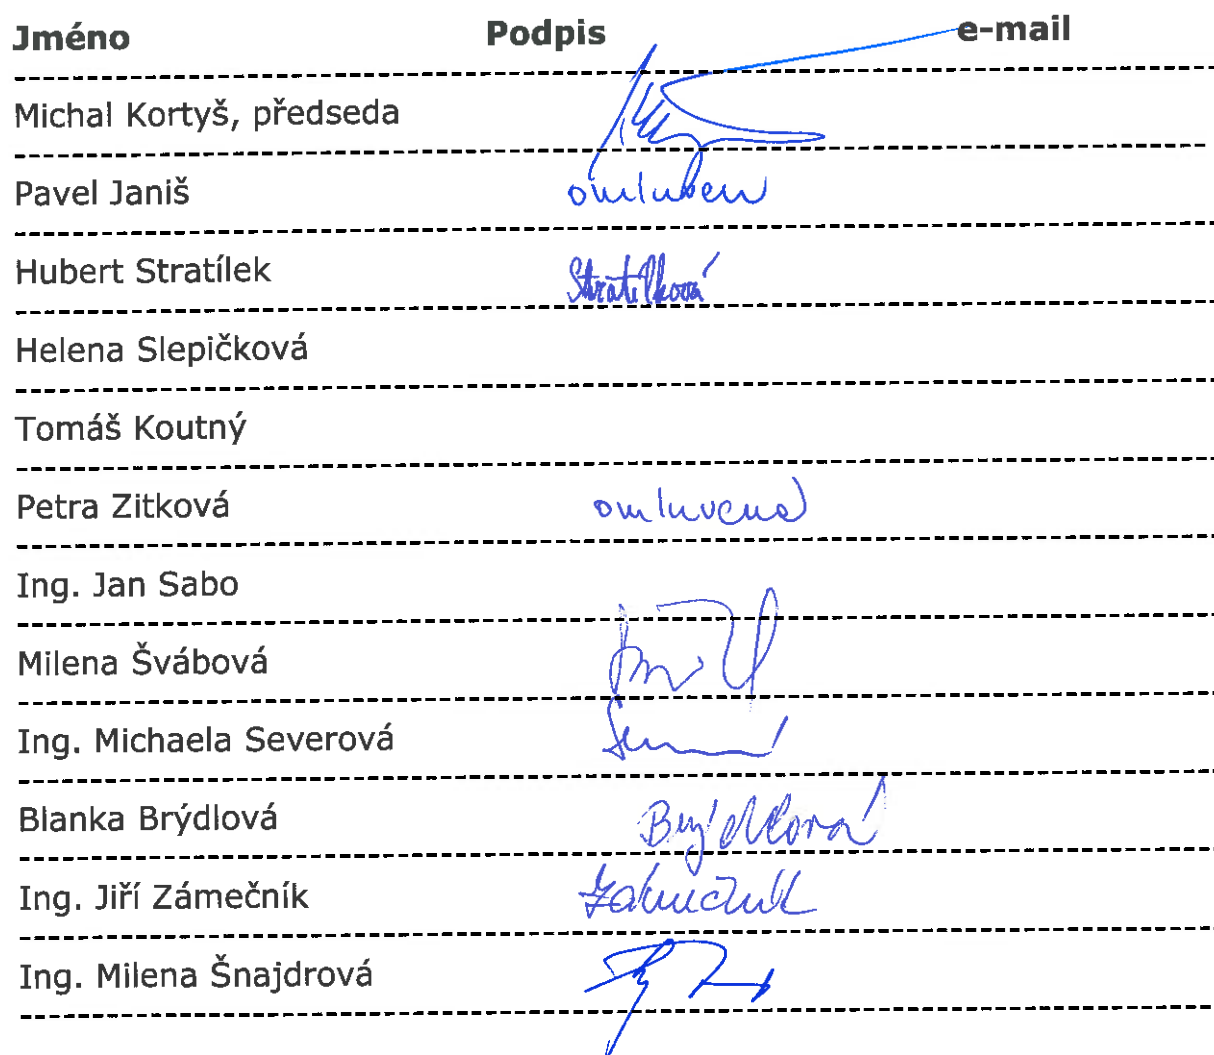 Jméno Podpis e-mail
Michal Kortyš, předseda
Pavel Janiš omluven
Hubert Stratílek Stratílková
Helena Slepičková
Tomáš Koutný
Petra Zitková omluvena
Ing. Jan Sabo
Milena Švábová
Ing. Michaela Severová
Blanka Brýdlová Brýdlová
Ing. Jiří Zámečník Zámečník
Ing. Milena Šnajdrová